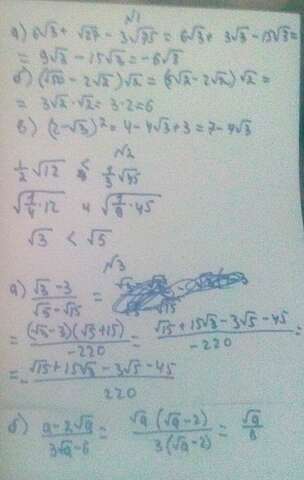 N1
а) 6√3 + √27 - 3√75 = 6√3 + 3√3 - 15√3 =
= 9√3 - 15√3 = -6√3
б) (√50 - 2√2)√2 = (5√2 - 2√2)√2 =
= 3√2 · √2 = 3·2 = 6
в) (2-√3)² = 4 - 4√3 + 3 = 7 - 4√3
N2
1/2 √12 < 1/3 √45
√(1/4 · 12) и √(1/9 · 45)
√3 < √5
N3
а) (√3 - 3)/(√5 - √15) =
= (√3 - 3)(√5 + 15)/-220 = (√15 + 15√3 - 3√5 - 45)/-220 =
= - (√15 + 15√3 - 3√5 - 45)/220
б) (a - 2√a)/(3√a - 6) = √a(√a - 2)/3(√a - 2) = √a/3